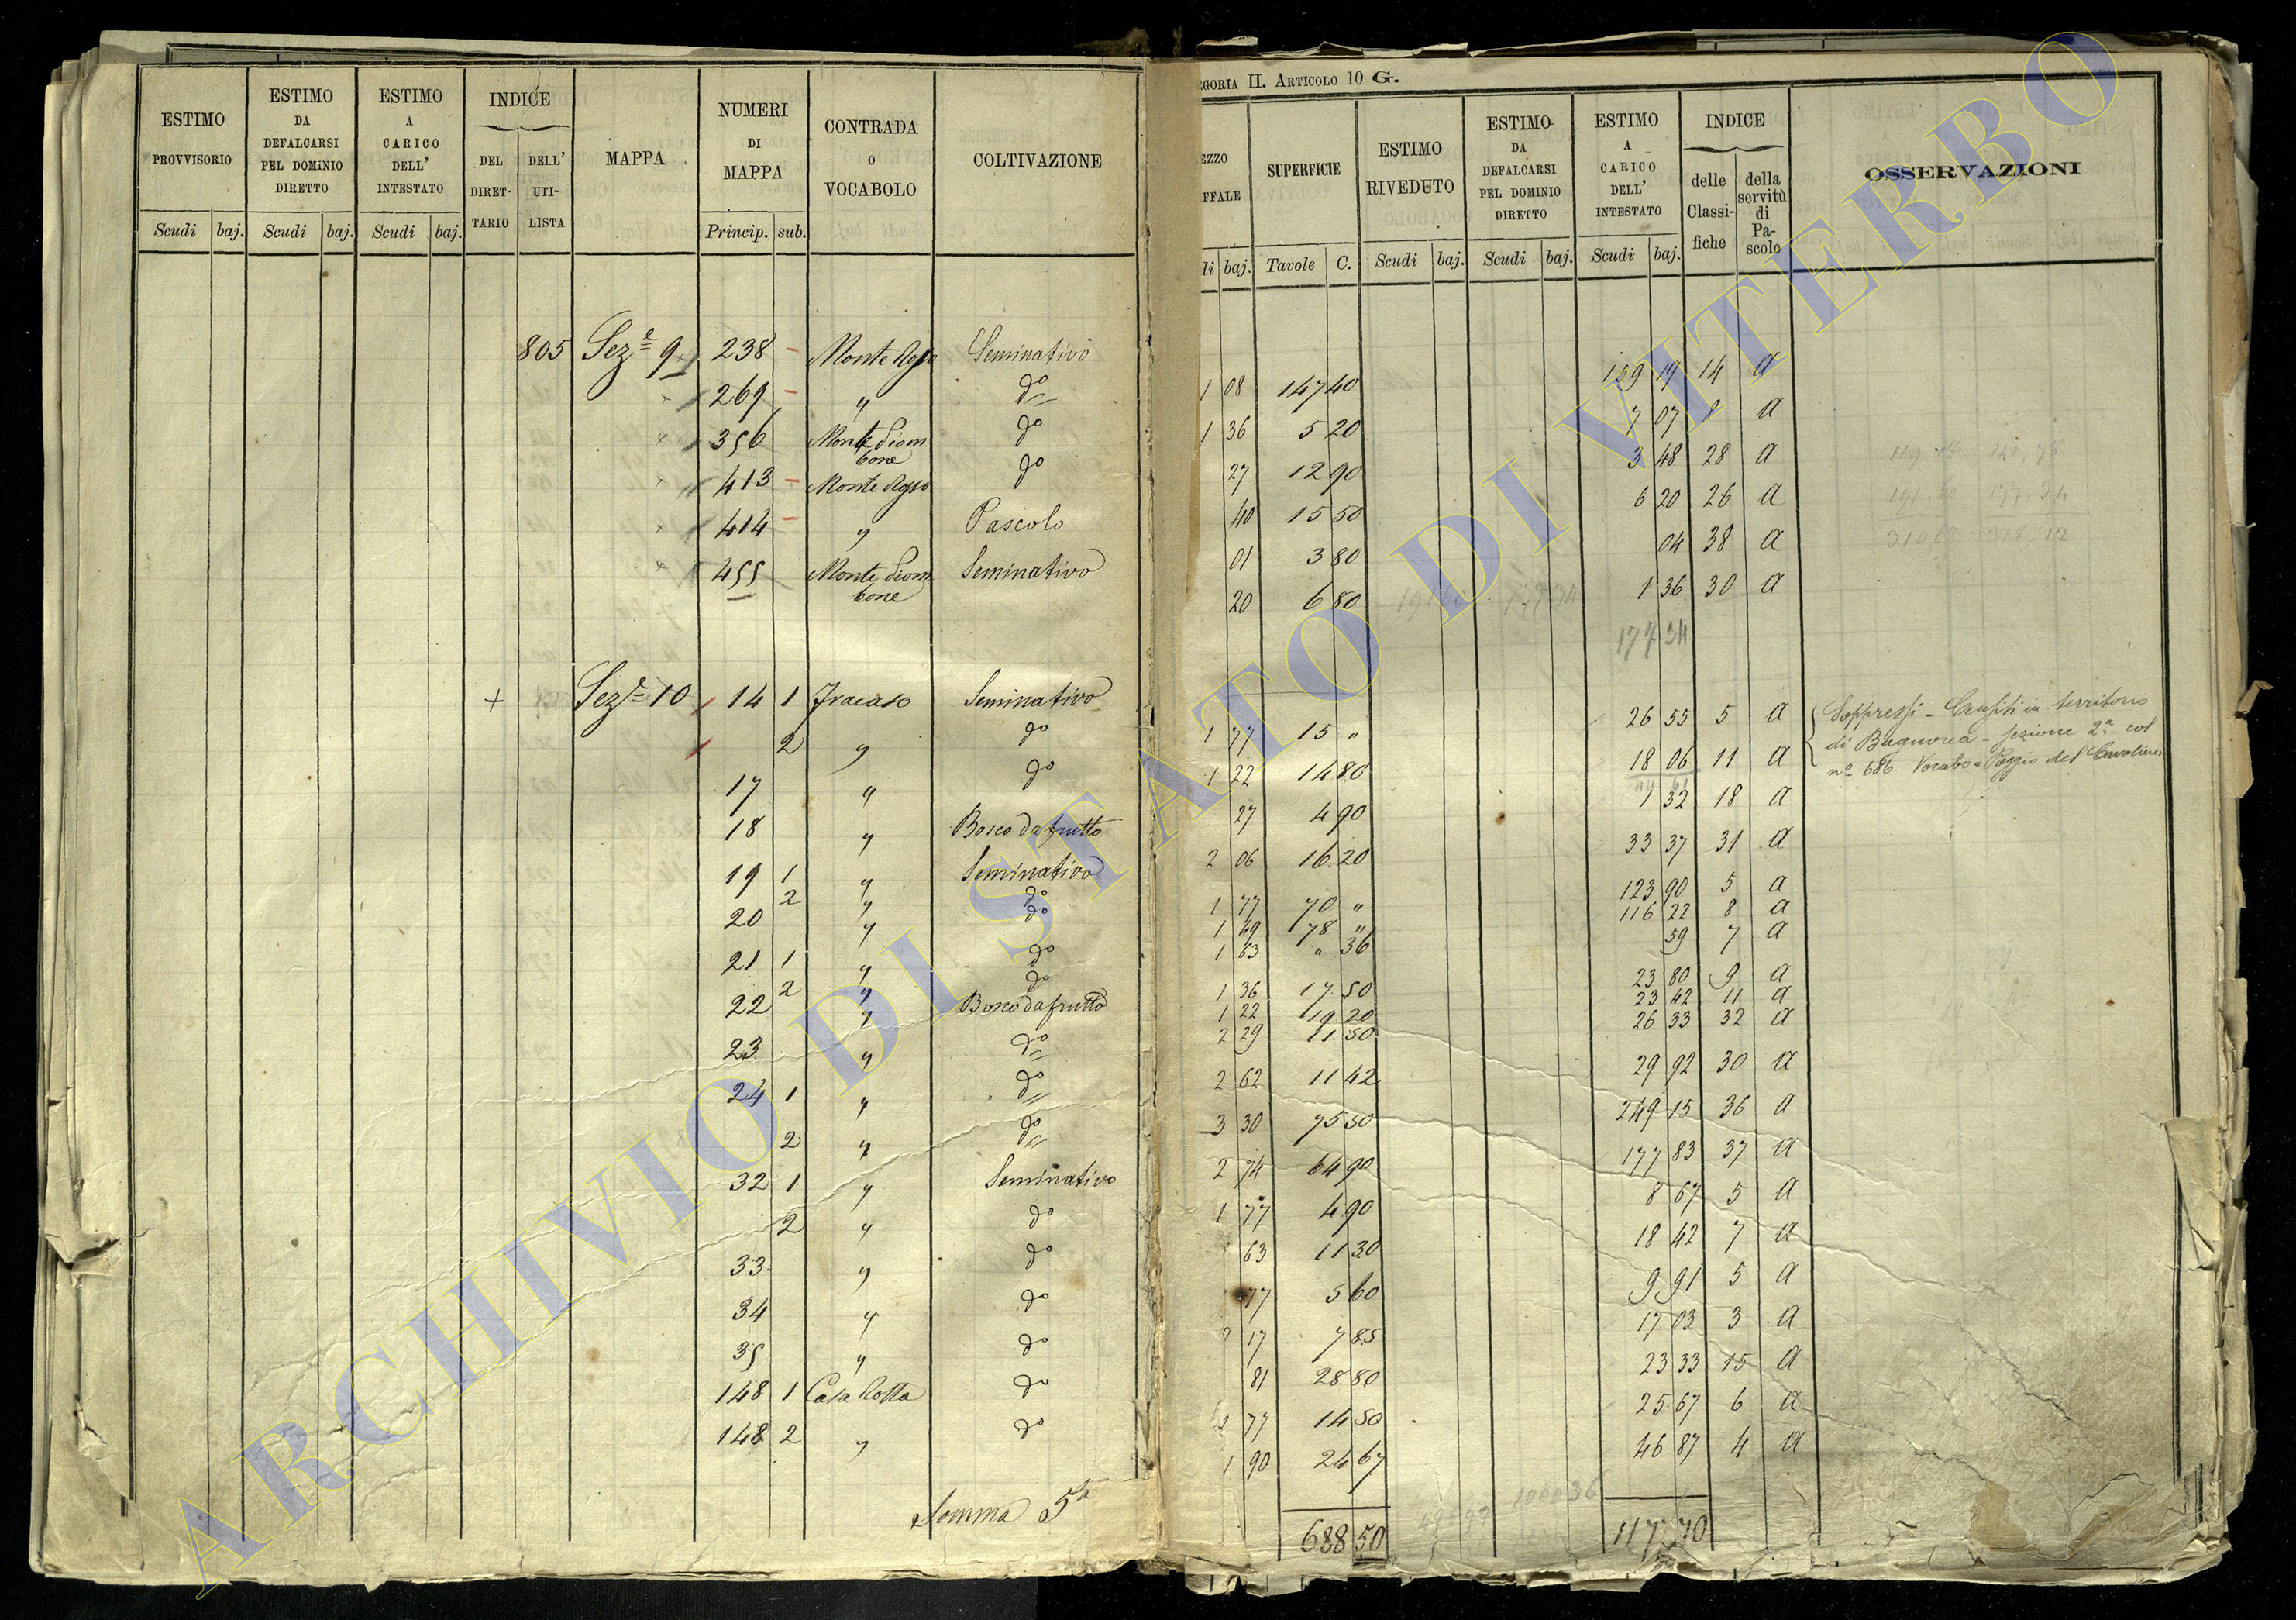 ESTIMO PROVVISORIO
ESTIMO DA DEFALCARSI PEL DOMINIO DIRETTO
ESTIMO A CARICO DELL' INTESTATO
INDICE
DEL DIRET-TARIO
DELL' UTI-LISTA
MAPPA
NUMERI DI MAPPA
CONTRADA O VOCABOLO
COLTIVAZIONE
Scudi baj. Scudi baj. Scudi baj. Princip. sub.
805 Sez.e 9 238 Monte Seminativo
269 " do
356 Monte do
413 Monte do
414 " Pascolo
455 Monte Seminativo
+ Sez.e 10 14 1 Fracaso Seminativo
2 " do
17 " do
18 " Bosco da frutto
19 1 " Seminativo
2 " do
20 " do
21 1 " do
2 " do
22 " Bosco da frutto
23 " do
24 1 " do
2 " do
32 1 " Seminativo
2 " do
33 " do
34 " do
35 " do
148 1 Casa Rotta do
148 2 " do
Somma 5a
EGORIA II. ARTICOLO 10 G.
EZZO
FFALE
SUPERFICIE
ESTIMO RIVEDUTO
ESTIMO DA DEFALCARSI PEL DOMINIO DIRETTO
ESTIMO A CARICO DELL' INTESTATO
INDICE
delle Classi-fiche
della servitù di Pa-scolo
OSSERVAZIONI
di baj. Tavole C. Scudi baj. Scudi baj. Scudi baj.
1 08 147 40 159 19 14 a
1 36 5 20 7 07 8 a
27 12 90 3 48 28 a
40 15 50 6 20 26 a
01 3 80 04 38 a
20 6 80 1 36 30 a
177 34
1 77 15 " 26 55 5 a
Soppressi - Censiti in territorio
1 22 14 80 18 06 11 a
di Bagnorea - sezione 2a col
no 686 Vocabo Poggio del Cavaliere
27 4 90 1 32 18 a
2 06 16 20 33 37 31 a
1 77 70 " 123 90 5 a
1 49 78 " 116 22 8 a
1 63 " 36 59 7 a
1 36 17 50 23 80 9 a
1 22 19 20 23 42 11 a
2 29 11 50 26 33 32 a
2 62 11 42 29 92 30 a
3 30 75 50 249 15 36 a
2 74 64 90 177 83 37 a
1 77 4 90 8 67 5 a
63 11 30 18 42 7 a
77 5 60 9 91 5 a
17 7 85 17 03 3 a
81 28 80 23 33 15 a
77 14 50 25 67 6 a
1 90 24 67 46 87 4 a
688 50 70
ARCHIVIO DI STATO DI VITERBO